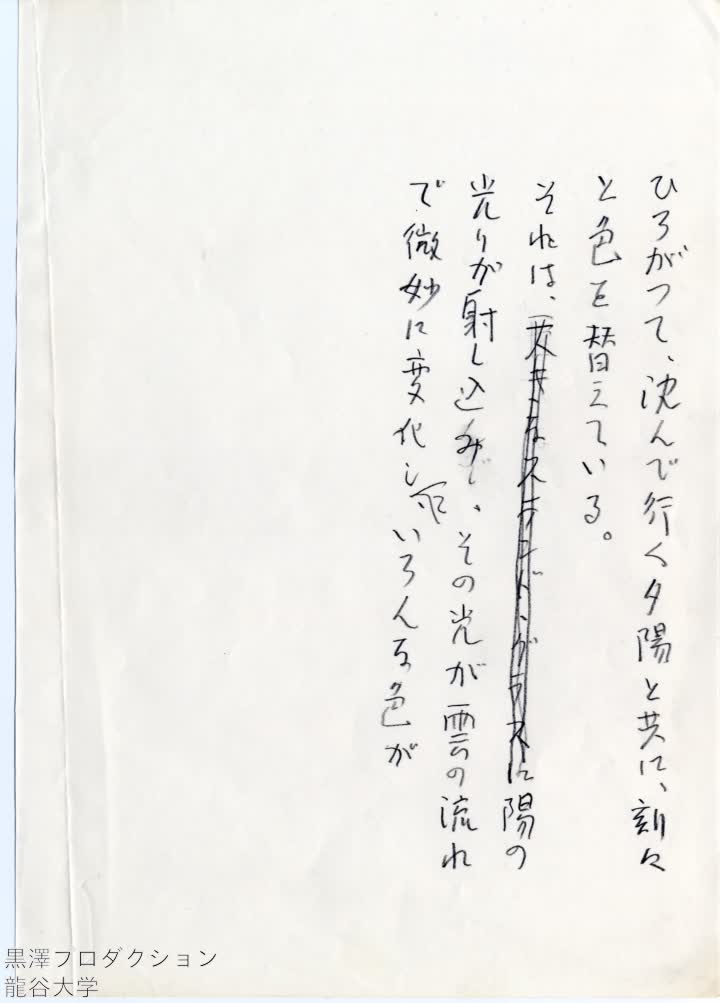 ひろがつて、沈んで行く夕陽と共に、刻々
と色を替えている。
それは、大きなステンドングラスに陽の
光りが射し込み、その光が雲の流れ
で微妙に変化し、いろんな色が
黒澤フロダクション
龍谷大学